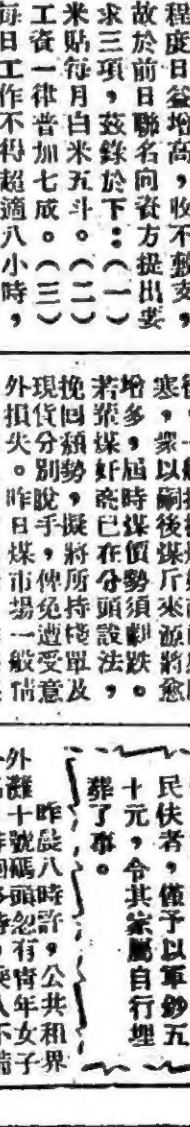 程度日益增高，收不敷支，
故於前日聯名向資方提出要
求三項，茲錄於下：（一）
米貼每月白米五斗。（二）
工資一律普加七成。（三）
每日工作不得超過八小時，
寒，衆以嗣後煤斤來源將愈
增多，屆時煤價勢須劇跌。
若輩煤奸商已在分頭設法，
挽回頹勢，擬將所持棧單及
現貨分別脫手，俾免遭受意
外損失。昨日煤市場一般情
民伕者，僅予以軍鈔五
十元，令其家屬自行埋
葬了事。
昨晨八時許，公共租界
外灘十號碼頭忽有靑年女子